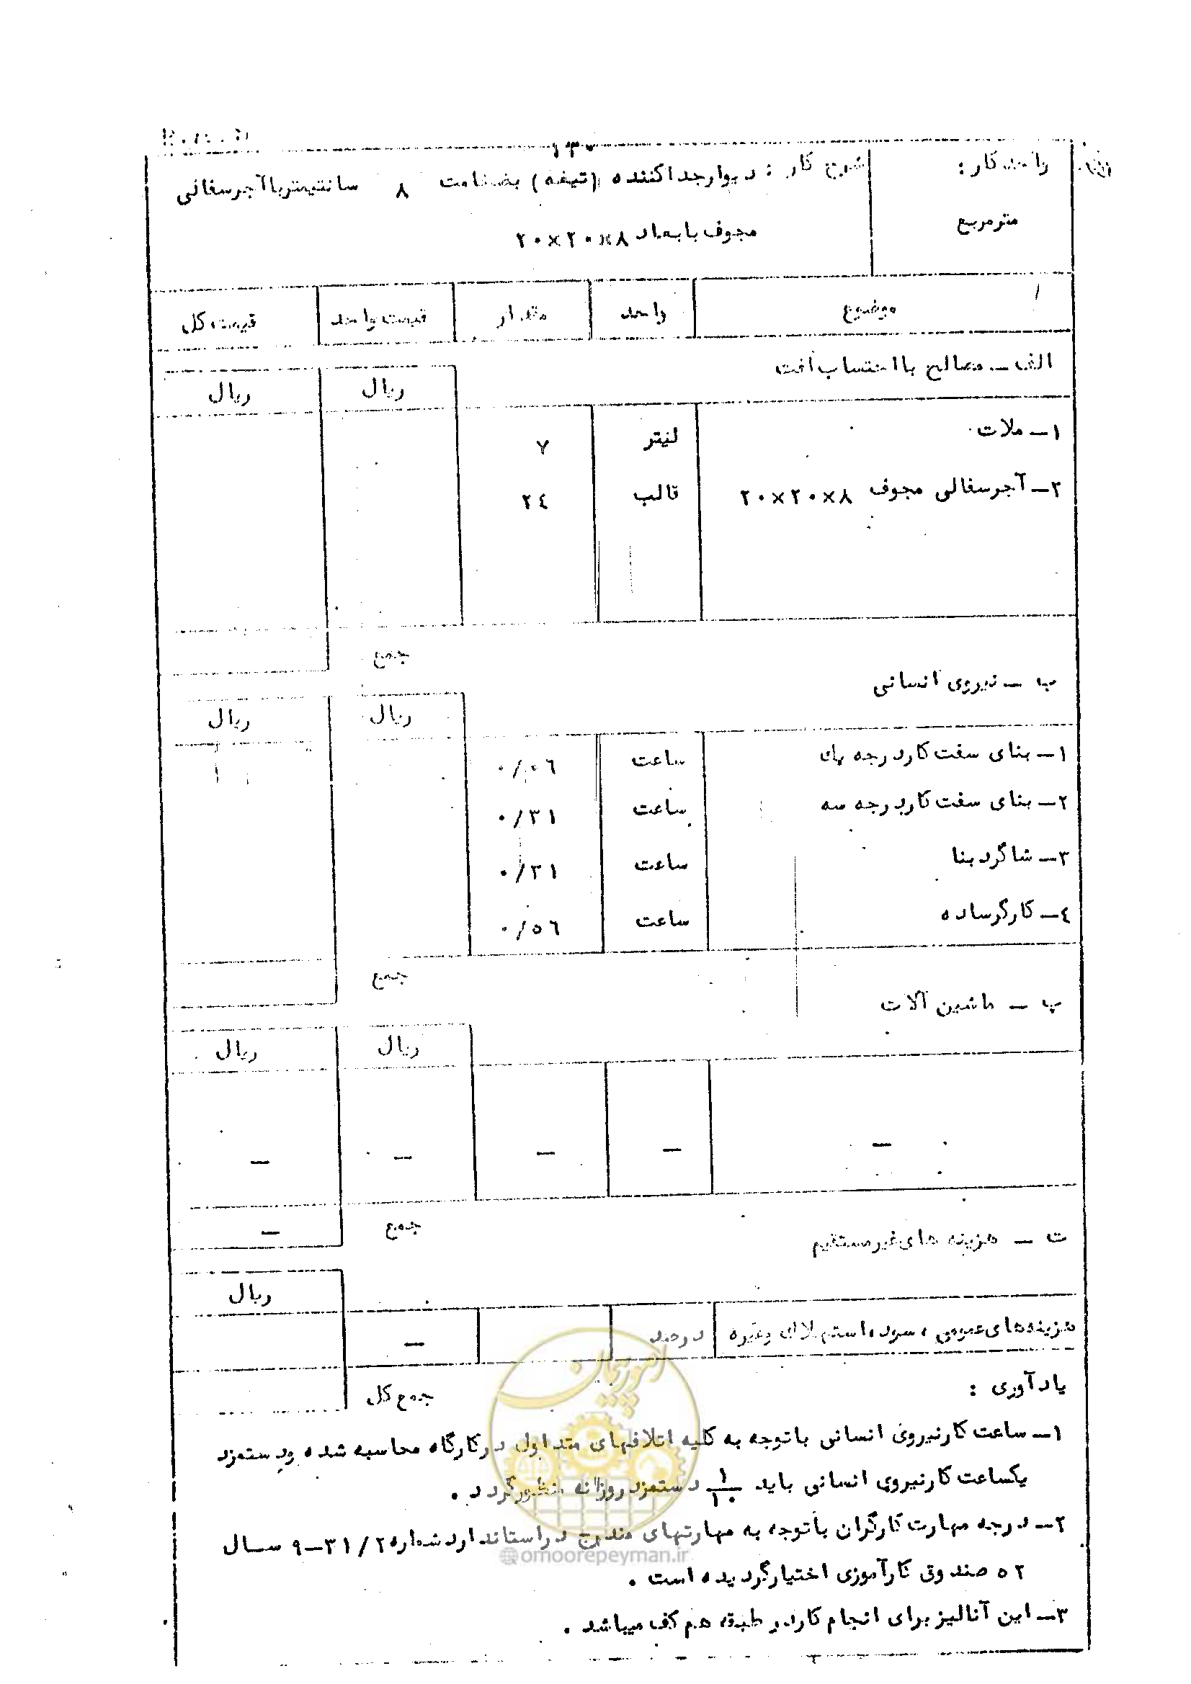 ۱۳۰
واحد کار : شرح کار : دیوار جداکننده (تیغه) بضخامت ۸ سانتیمتر با آجر سفالی
مترمربع مجوف با بعاد ۸×۲۰×۲۰
موضوع واحد مقدار قیمت واحد قیمت کل
الف ـ مصالح با احتساب افت
ریال ریال
۱ـ ملات لیتر ۷
۲ـ آجر سفالی مجوف ۸×۲۰×۲۰ قالب ۲٤
جمع
ب ـ نیروی انسانی
ریال ریال
۱ـ بنای سفت کار درجه یک ساعت ۰/۰٦
۲ـ بنای سفت کار درجه سه ساعت ۰/۳۱
۳ـ شاگرد بنا ساعت ۰/۳۱
٤ـ کارگر ساده ساعت ۰/۵٦
جمع
پ ـ ماشین آلات
ریال ریال
ـ ـ ـ ـ ـ
جمع ـ
ت ـ هزینه های غیرمستقیم
ریال
هزینه های عمومی ، سود ، استهلاک وغیره درصد ـ
جمع کل
یادآوری :
۱ـ ساعت کار نیروی انسانی با توجه به کلیه اتلافهای متداول در کارگاه محاسبه شده و دستمزد
یکساعت کار نیروی انسانی باید ۱/۱۰ دستمزد روزانه منظور گردد .
۲ـ درجه مهارت کارگران با توجه به مهارتهای مندرج در استاندارد شماره ۹ـ۳۱/۲ سال
۵۲ صندوق کارآموزی اختیار گردیده است .
۳ـ این آنالیز برای انجام کار در طبقه هم کف میباشد .
امور پیمان
@omoorepeyman.ir